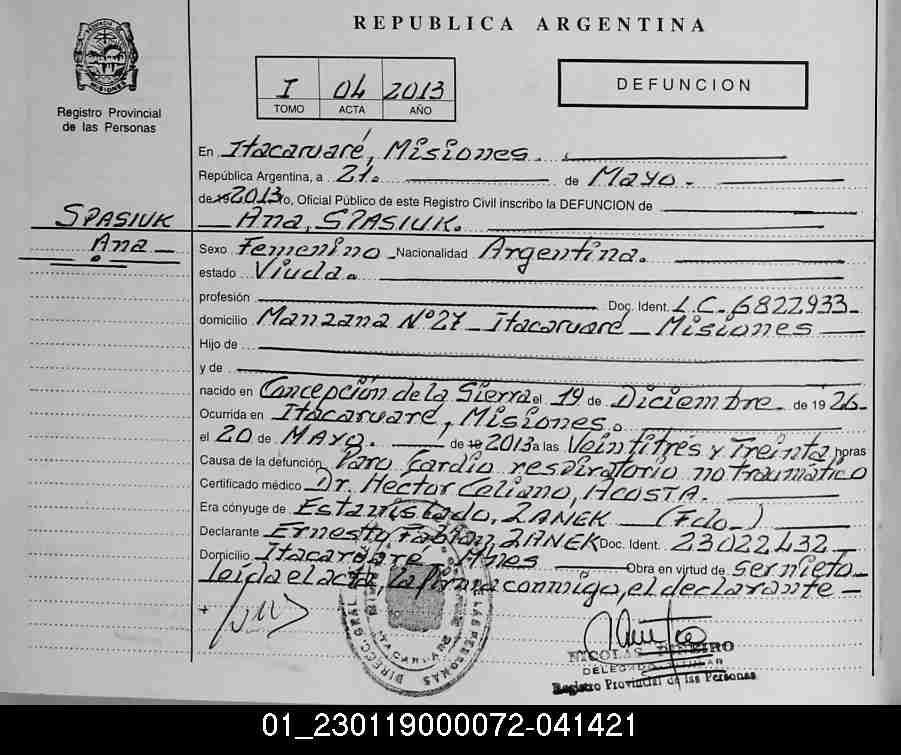 REPUBLICA ARGENTINA
PROVINCIA DE MISIONES
Registro Provincial
de las Personas
I 04 2013
TOMO ACTA AÑO
DEFUNCION
En Itacaruaré, Misiones.
República Argentina, a 21. de Mayo.
de 19 2013 yo, Oficial Público de este Registro Civil inscribo la DEFUNCION de
SPASIUK
Ana
Ana, SPASIUK.
Sexo Femenino Nacionalidad Argentina.
estado Viuda.
profesión Doc. Ident. L.C. 6822933
domicilio Manzana Nº 27 - Itacaruaré - Misiones
Hijo de
y de
nacido en Concepción de la Sierra el 19 de Diciembre de 1926
Ocurrida en Itacaruaré, Misiones.
el 20 de MAYO. de 19 2013 a las Veintitrés y Treinta horas
Causa de la defunción Paro Cardio respiratorio no traumático
Certificado médico Dr. Héctor Celiano, ACOSTA.
Era cónyuge de Estanislado, ZANEK (Fdo)
Declarante Ernesto Fabian ZANEK Doc. Ident. 23022432
Domicilio Itacaruaré Mnes Obra en virtud de ser nieto
leída el acta, la firma conmigo, el declarante
DIRECC. GRAL. DE LAS PERSONAS
NICOLAS PIÑEIRO
DELEGADO TITULAR
Registro Provincial de las Personas
01_230119000072-041421